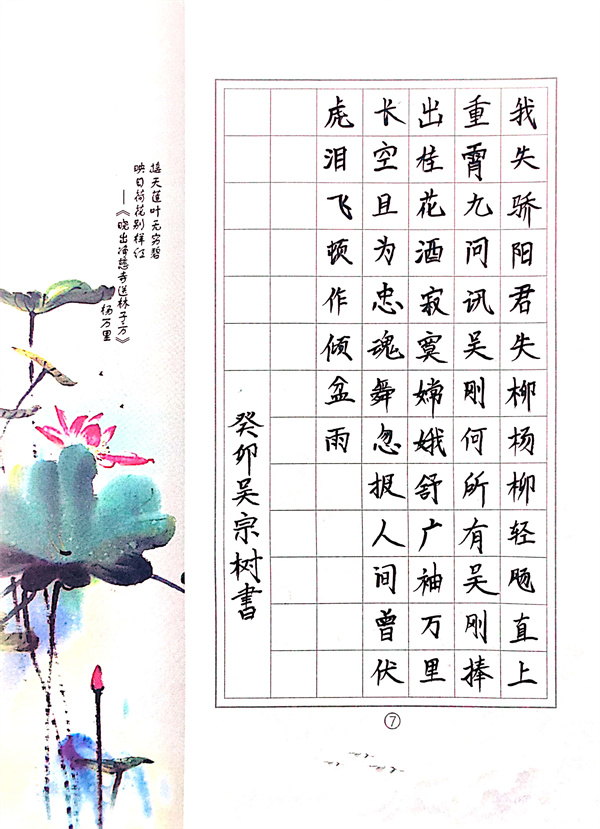 我失骄阳君失柳杨柳轻飏直上
重霄九问讯吴刚何所有吴刚捧
出桂花酒寂寞嫦娥舒广袖万里
长空且为忠魂舞忽报人间曾伏
虎泪飞顿作倾盆雨
癸卯吴宗树书
接天莲叶无穷碧
映日荷花别样红
——《晓出净慈寺送林子方》
杨万里
⑦